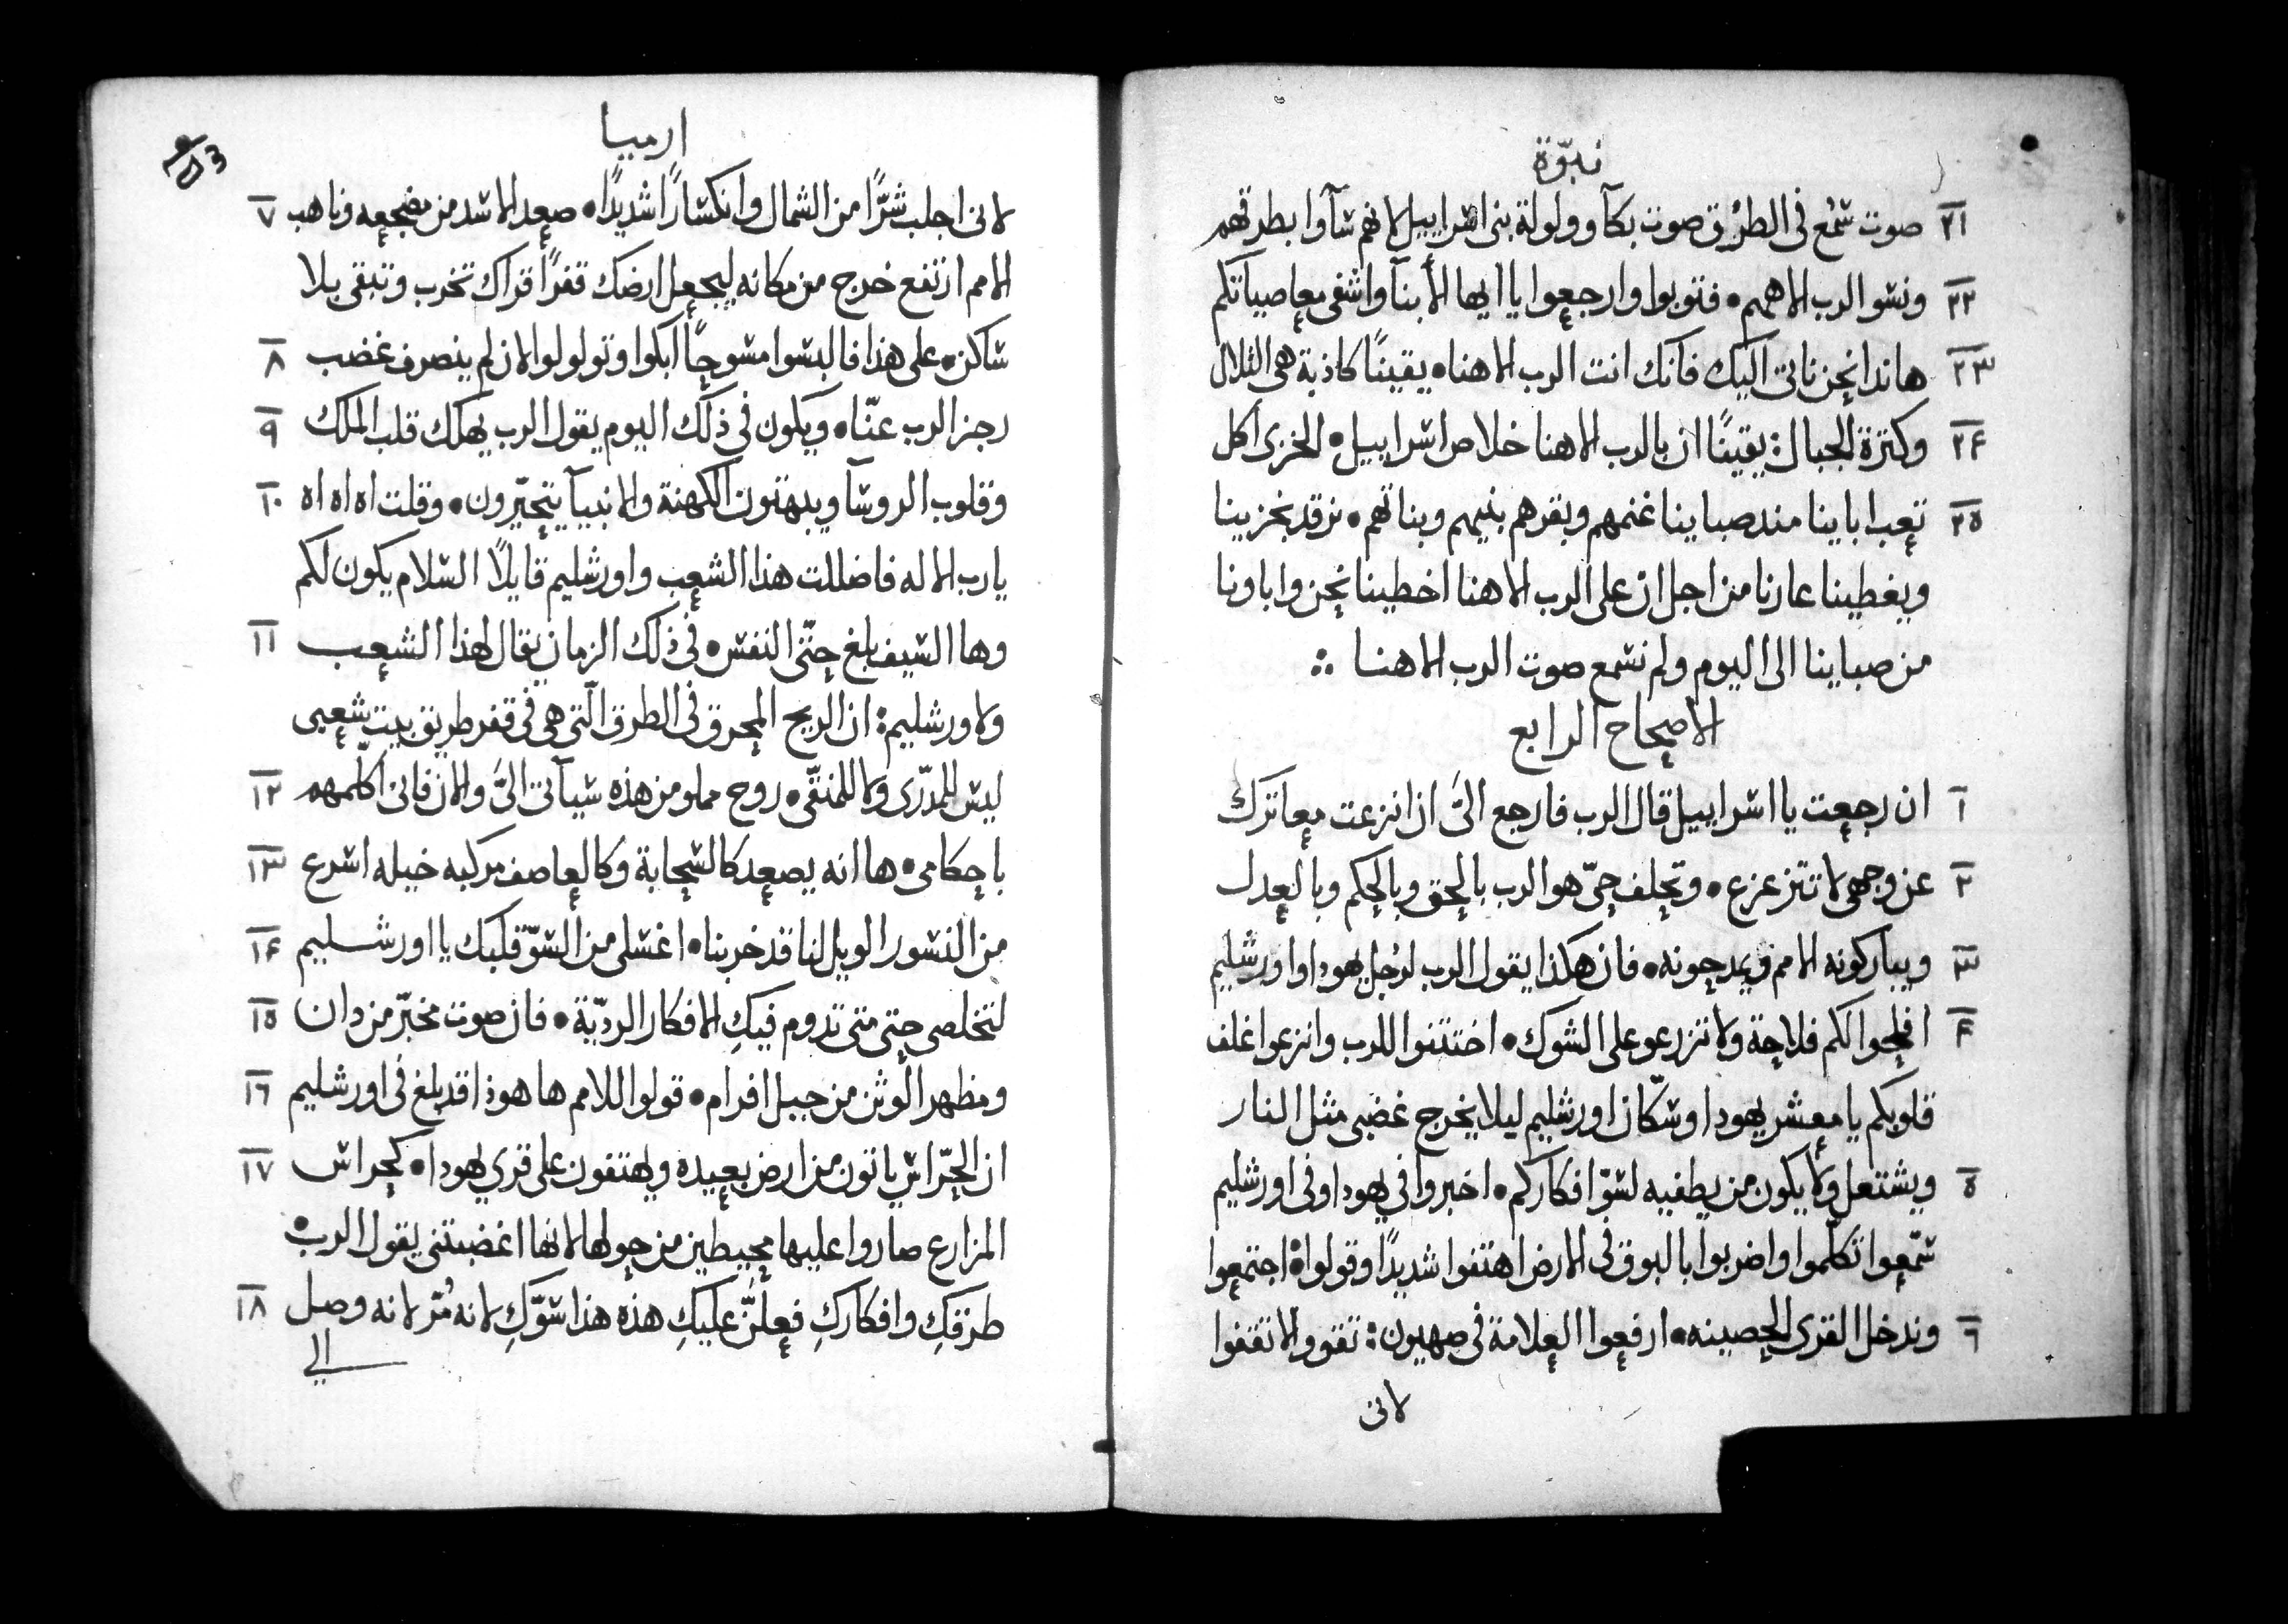 نبوّة
٢١ صوت سُمع فى الطرُيق صوت بكآ وولولة بنى اسراييل لانهم سآوا بطرقهم
٢٢ ونسو الرب الاههم • فتوبوا وارجعوا يا ايها الأبنآ واشفى معاصياتكم
٢٣ هاندا نحن ناتى اليك فانك انت الرب الاهنا • يقينًا كاذبة هى التلال
٢٤ وكثرة الجبال : يقينًا ان بالرب الاهنا خلاص اسراييل • الخزى اكل
٢٥ تعب اباينا مند صباينا غنمهم وبقرهم بنيهم وبناتهم • نرقد بخزينا
ويغطينا عارنا من اجل ان على الرب الاهنا اخطينا نحن واباونا
من صباينا الى اليوم ولم نسمع صوت الرب الاهنا ∴
الاصحاح الرابع
١ ان رجعت يا اسراييل قال الرب فارجع الىَّ ان انزعت معاترك
٢ عن وجهى لا تتزعزع • وتحلف حىّ هو الرب بالحق وبالحكم وبالعدل
٣ ويباركونه الامم ويمدحونه • فان هكذا يقول الرب لرُجل يهودا واورشليم
٤ افلحوا لكم فلاحة ولا تزرعو على الشوك • اختتنوا للرب وانزعوا غلف
قلوبكم يا معشر يهودا وسكّان اورشليم ليلا يخرج غضبى مثل النار
٥ ويشتعل ولا يكون من يطفيه لسوّ افكاركم • اخبروا في يهودا وفى اورشليم
سمّعوا تكلّموا واضربوا بالبوق فى الارض اهتفوا شديدًا وقولوا • اجتمعوا
٦ وندخل القرى الحصينه • ارفعوا العلامة فى صهيون : تقوو الا تقفوا
لانى
ارميا
لانى اجلب شرًّا من الشمال وانكسارًا شديدًا • صعد الاسد من مضجعه وناهب ٧
الامم ارتفع خرج من مكانه ليجعل ارضك قفرًا قراك تخرب وتبقى بلا
ساكن • على هذا فالبسوا مسوحًا ابكوا وتولولوا لان لم ينصرف غضب ٨
رجز الرب عنّا • ويكون فى ذلك اليوم يقول الرب يهلك قلب الملك ٩
وقلوب الروسآ ويبهتون الكهنة والانبيآ يتحيّرون • وقلت اه اه اه ١٠
يارب الاله فاضللت هذا الشعب واورشليم قايلًا السلام يكون لكم
وها السيف بلغ حتّى النفس • فى ذلك الزمان يقال لهذا الشعب ١١
ولاورشليم : ان الريح المحرق فى الطرق الّتى هى فى قفر طريق بيت شعبى
ليس للمدّرى ولا للمنقّى • روح مملو من هذه سياتى الىَّ والان فانى اكلّمهم ١٢
باحكامى • ها انه يصعد كالسحابة وكالعاصف مركبه خيله اسرع ١٣
من النسور الويل لنا قد خربنا • اغسلى من السوّ قلبك يا اورشليم ١٤
لتخلصى حتى متى تدوم فيكِ الافكار الرديّة • فان صوت مخبّر من دان ١٥
ومظهر الوثن من جبل افرام • قولوا للامم ها هوذا قد بلغ فى اورشليم ١٦
ان الحرّاس ياتون من ارض بعيده ويهتفون على قري يهودا • كحراس ١٧
المزارع صاروا عليها محيطين من حولها لانها اغضبتنى يقول الرب •
طرقكِ وافكاركِ فعلنَّ عليكِ هذه هذا سوّكِ لانه مُرّ لانه وصل ١٨
الي